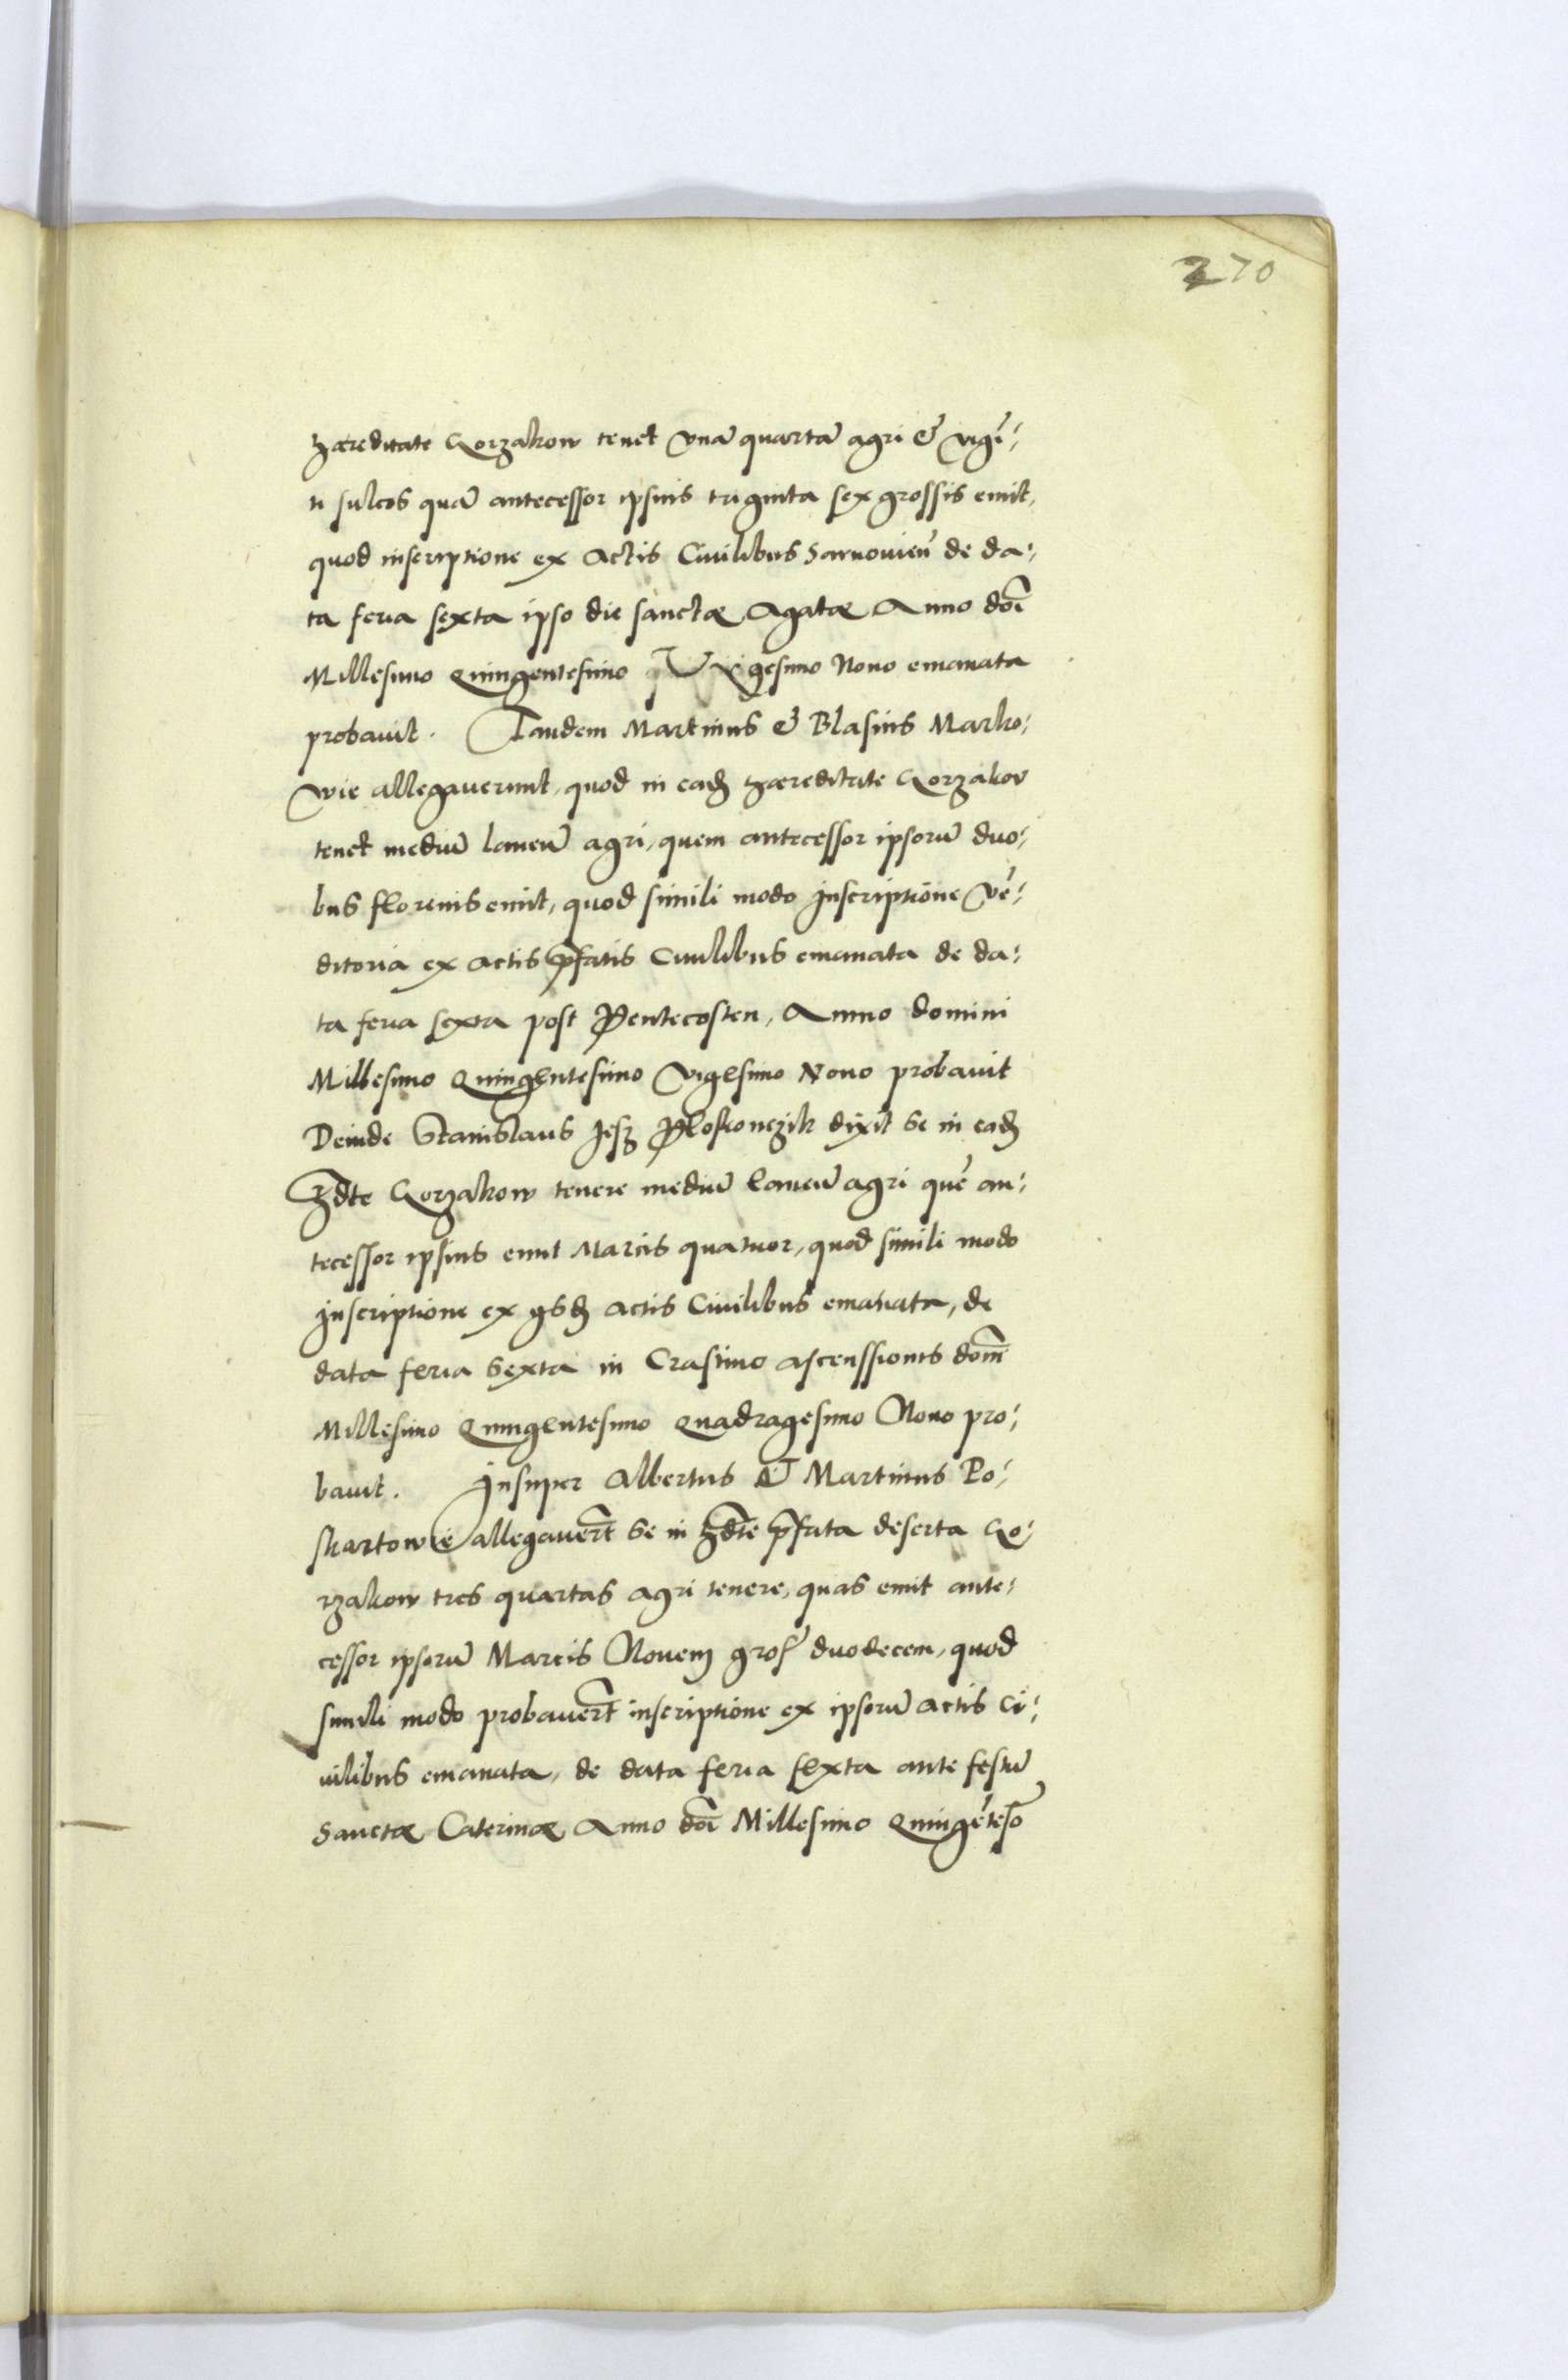 270
hæreditate Gorzakow tenet vnā quartā agri & vigī:
ti sulcos quā antecessor ipsius triginta sex grossis emit,
quod inscriptione ex Actis Ciuilibus Sarnouieñ de da:
ta feria sexta ipso die sanctæ Agatæ Anno dōi
Millesimo Quingentesimo Vigesimo Nono emanata
probauit. Tandem Martinus & Blasius Marko:
wie allegauerunt, quod in eadē hæreditate Gorzakov
tenet mediū laneū agri, quem antecessor ipsorū duo:
bus florenis emit, quod simili modo Inscriptione vē:
ditoria ex actis p̄fatis Ciuilibus emanata de da:
ta feria sexta post Pentecosten, Anno domini
Millesimo Quingentesimo vigesimo Nono probauit
Deinde Stanislaus Jesz Ploskonczik dixit se in eadē
hd̄te Gorzakow tenere mediū laneū agri quē an:
tecessor ipsius emit Marcis quatuor, quod simili modo
Inscriptione ex ijsdē actis Ciuilibus emanata, de
data feria Sexta in Crastino ascenssionis dom̄
Millesimo Quingentesimo Quadragesimo Nono pro:
bauit. Insuper Albertus Et Martinus Po:
skartowie allegauer̄t se in hd̄te p̄fata deserta Go:
rzakow tres quartas agri tenere, quas emit ante:
cessor ipsorū Marcis Nouem gros̄ duodecem, quod
simili modo probauer̄t inscriptione ex ipsorū actis Ci:
uilibus emanata, de data feria sexta ante festū
Sanctæ Caterinæ Anno dōi Millesimo Quingētes̄o